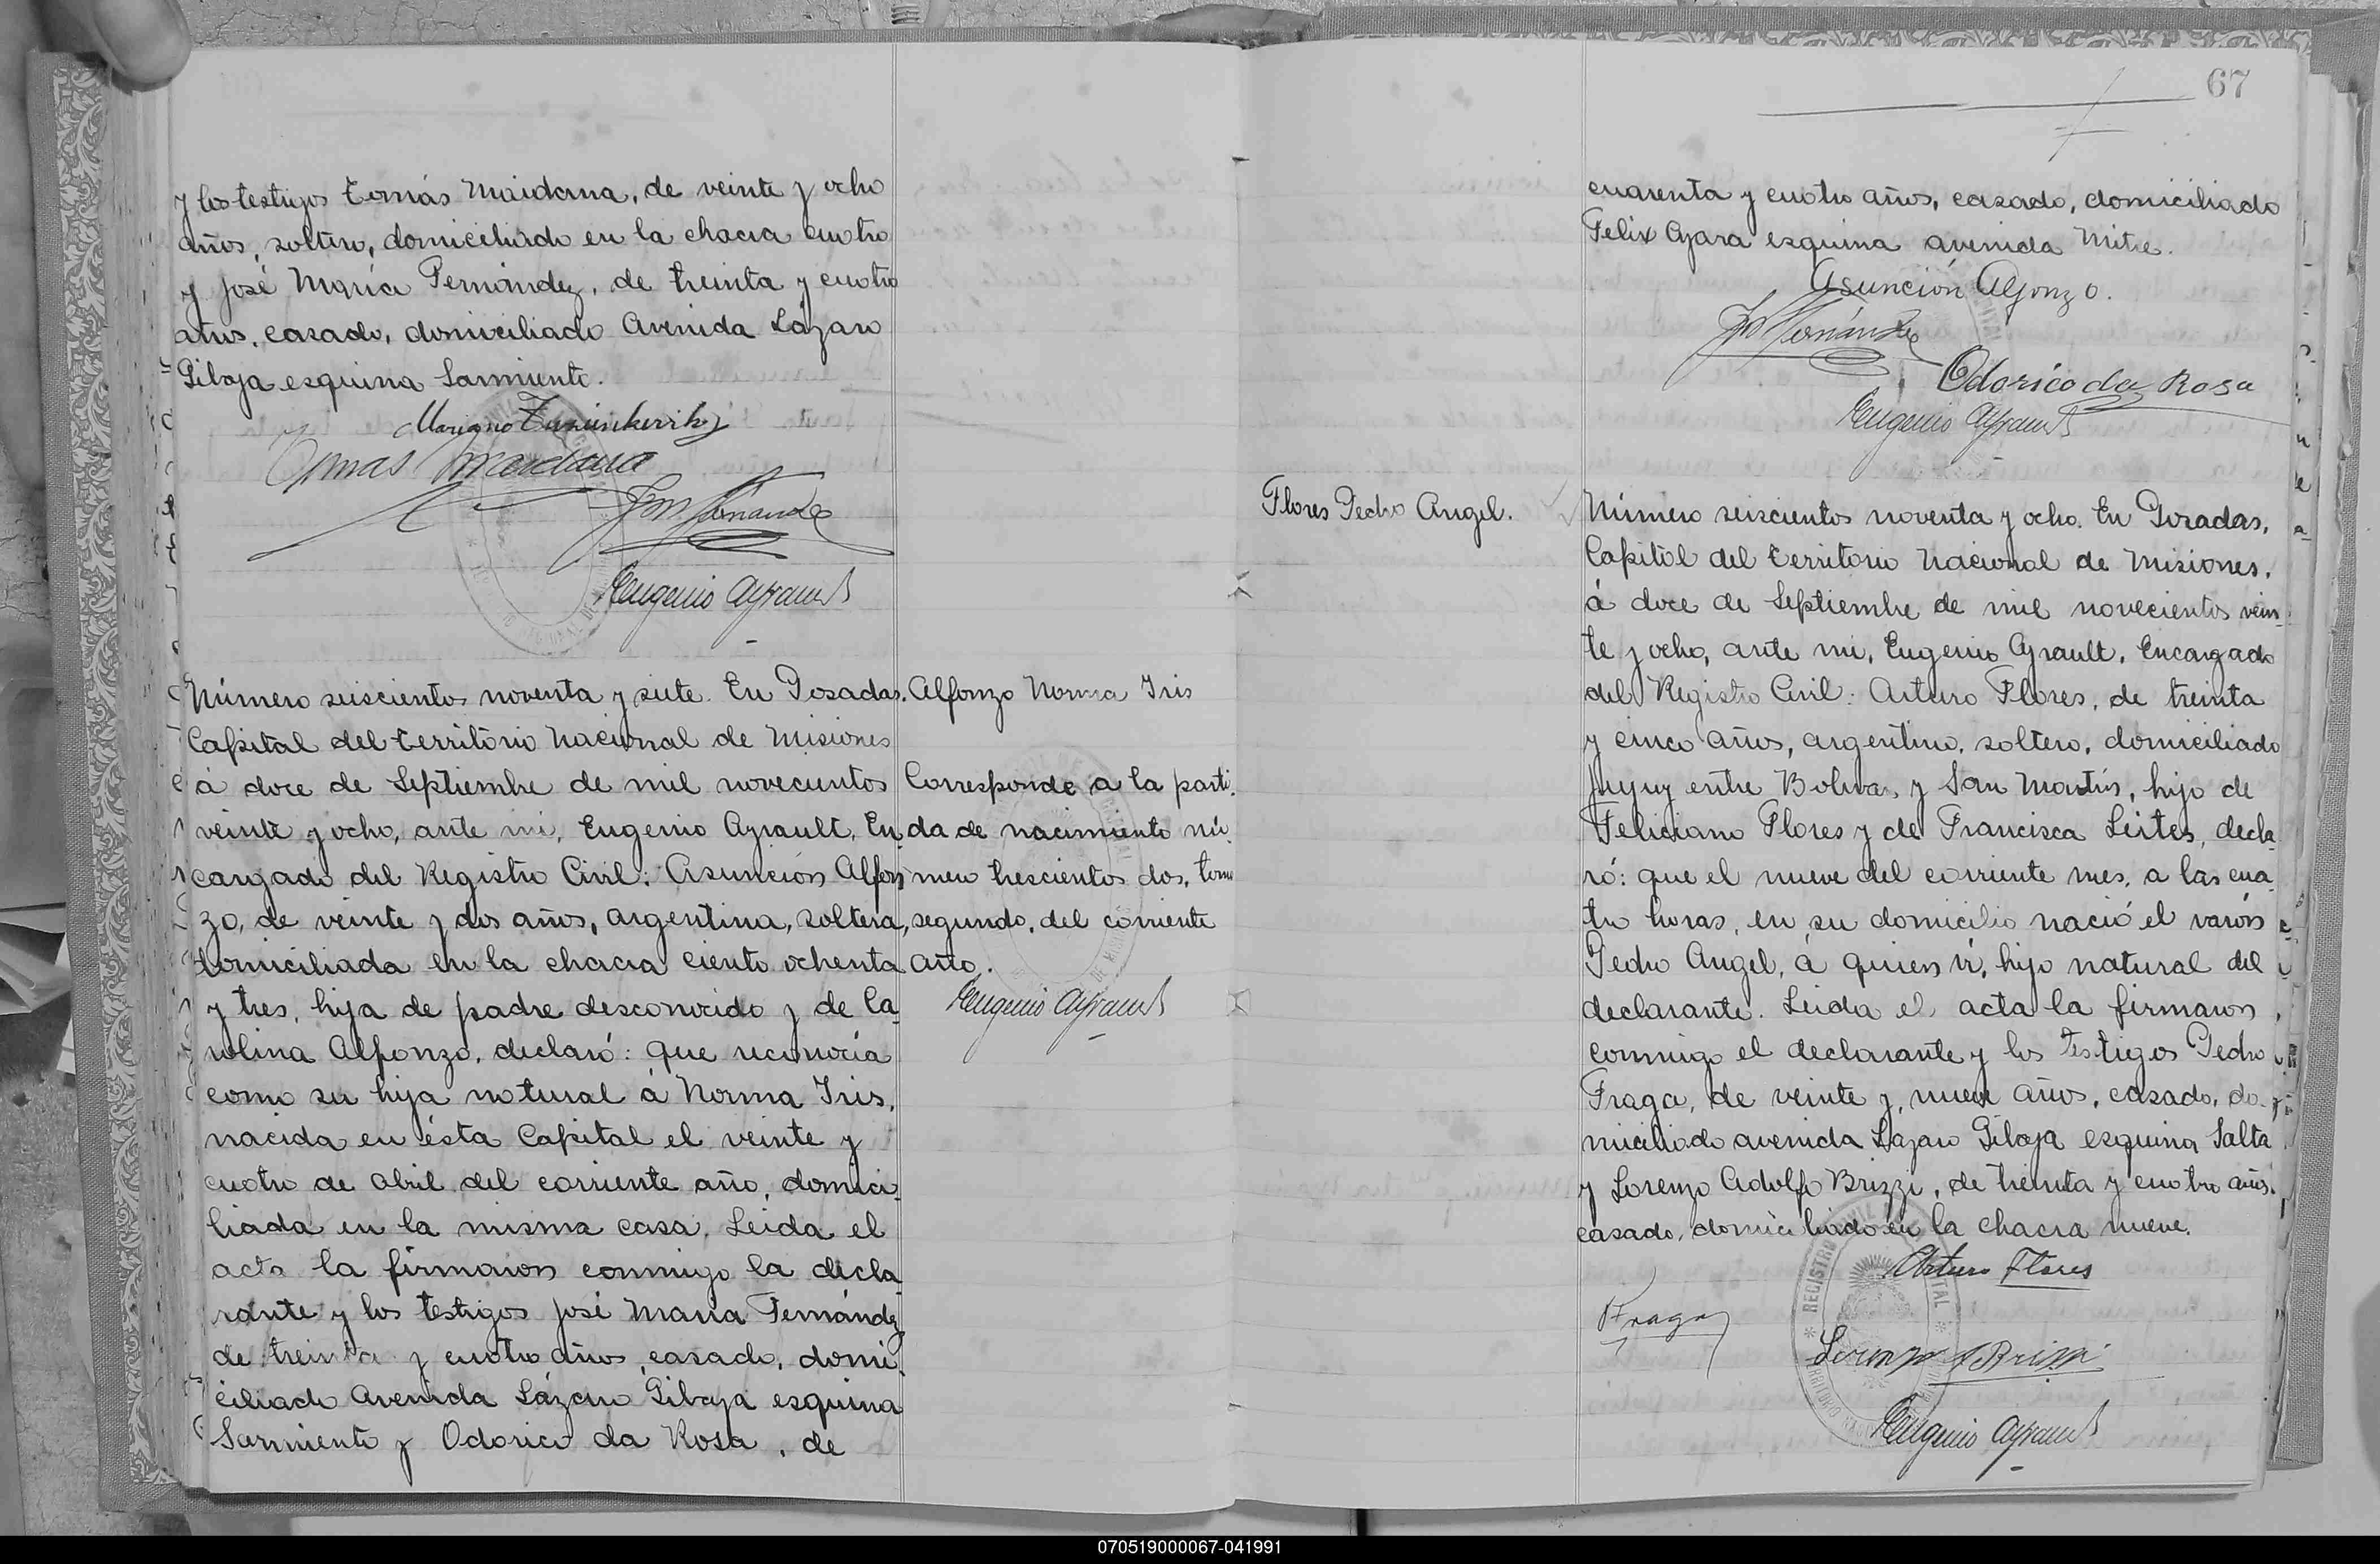 y los testigos Tomás Maidana, de veinte y ocho
años, soltero, domiciliado en la chacra cuatro
y José María Fernández, de treinta y cuatro
años, casado, domiciliado Avenida Lázaro
Gibaja esquina Sarmiento.
Mariano
Tomás Maidana
José Fernández
Eugenio Ayrault
Número seiscientos noventa y siete. En Posadas,
Capital del territorio Nacional de Misiones
á doce de Septiembre de mil novecientos
veinte y ocho, ante mi, Eugenio Ayrault, En
cargado del Registro Civil: Asunción Alfon
zo, de veinte y dos años, argentina, soltera,
domiciliada en la chacra ciento ochenta
y tres, hija de padre desconocido y de Ca
rolina Alfonzo, declaró: que reconocía
como su hija natural á Norma Iris,
nacida en ésta Capital el veinte y
cuatro de abril del corriente año, domici
liada en la misma casa. Leida el
acta la firmaron conmigo la decla
rante y los testigos José María Fernández
de treinta y cuatro años, casado, domi
ciliado Avenida Lázaro Gibaja esquina
Sarmiento y Odorico da Rosa, de
Alfonzo Norma Iris
Corresponde a la parti
da de nacimiento nú
mero trescientos dos, tomo
segundo, del corriente
año.
Eugenio Ayrault
67
cuarenta y cuatro años, casado, domiciliado
Felix Azara esquina avenida Mitre.
Asunción Alfonzo.
José Fernández
Odorico da Rosa
Eugenio Ayrault
Flores Pedro Angel.
Número seiscientos noventa y ocho. En Posadas,
Capital del territorio Nacional de Misiones,
á doce de Septiembre de mil novecientos vein
te y ocho, ante mi, Eugenio Ayrault, Encargado
del Registro Civil: Arturo Flores, de treinta
y cinco años, argentino, soltero, domiciliado
Jujuy entre Bolivar y San Martín, hijo de
Feliciano Flores y de Francisca Leites, decla
ró: que el nueve del corriente mes, a las cua
tro horas, en su domicilio nació el varón
Pedro Angel, á quien ví, hijo natural del
declarante. Leida el acta la firmaron
conmigo el declarante y los testigos Pedro
Fraga, de veinte y nueve años, casado, do
miciliado avenida Lázaro Gibaja esquina Salta
y Lorenzo Adolfo Brizzi, de treinta y cuatro años,
casado, domiciliado en la chacra nueve.
Arturo Flores
Fraga
Lorenzo A Brizzi
Eugenio Ayrault
070519000067-041991